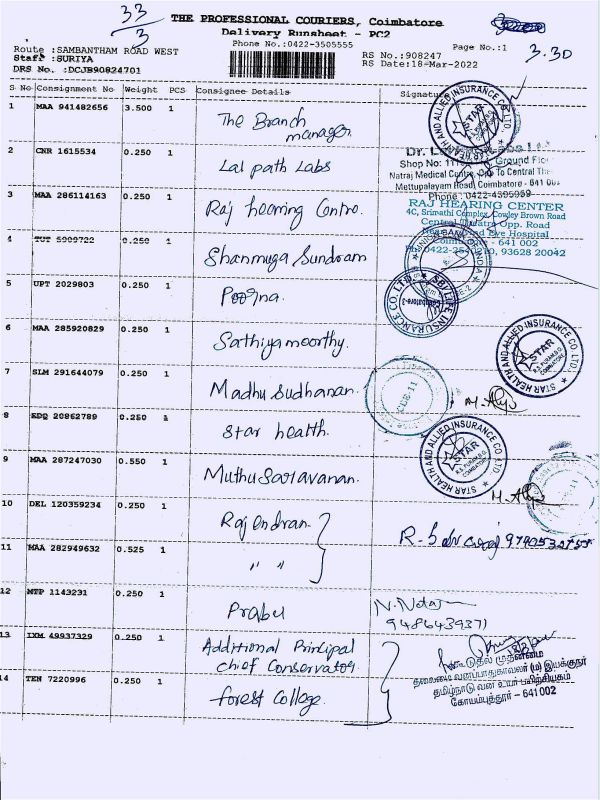 33
3
THE PROFESSIONAL COURIERS, Coimbatore
Delivery Runsheet - PC2
Phone No.:0422-3505555
Route :SAMBANTHAM ROAD WEST
Staff :SURIYA
DRS No. :DCJB90824701
RS No.:908247
RS Date:18-Mar-2022
Page No.:1
3.30
S No Consignment No Weight PCS Consignee Details Signature
1 MAA 941482656 3.500 1 The Branch manager
STAR HEALTH AND ALLIED INSURANCE CO LTD. STAR
2 CNR 1615534 0.250 1 Lal path Labs
Natraj Medical Centre, Opp To Central
Mettupalayam Road, Coimbatore - 641
Phone: 0422-4505959
3 MAA 286114163 0.250 1 Raj hearing Centre.
RAJ HEARING CENTRE
4C, Srimathi Complex, Cowley Brown Road
Central Theatre Opp. Road
Eye Hospital
Coimbatore - 641 002
93628 20042
4 TUT 5909722 0.250 1 Shanmuga Sundram
5 UPT 2029803 0.250 1 Poorna.
SBI LIFE INSURANCE CO. LTD.
6 MAA 285920829 0.250 1 Sathiyamoorthy.
STAR HEALTH AND ALLIED INSURANCE CO LTD. STAR R.S. PURAM B.O. COIMBATORE
7 SLM 291644079 0.250 1 Madhu Sudhanan.
8 EDQ 20862789 0.250 1 Star health.
STAR HEALTH AND ALLIED INSURANCE CO LTD. STAR R.S. PURAM B.O. COIMBATORE
9 MAA 287247030 0.550 1 Muthu Saravanan.
10 DEL 120359234 0.250 1 Rajendran.
11 MAA 282949632 0.525 1 " "
12 MTP 1143231 0.250 1 Prabu
9486439371
13 IXM 49937329 0.250 1 Additional Principal chief Conservator
14 TEN 7220996 0.250 1 forest College.
கூடுதல் முதன்மை
தலைமை வனப்பாதுகாவலர் (ம) இயக்குநர்
தமிழ்நாடு வன உயர் பயிற்சியகம்
கோயம்புத்தூர் - 641002